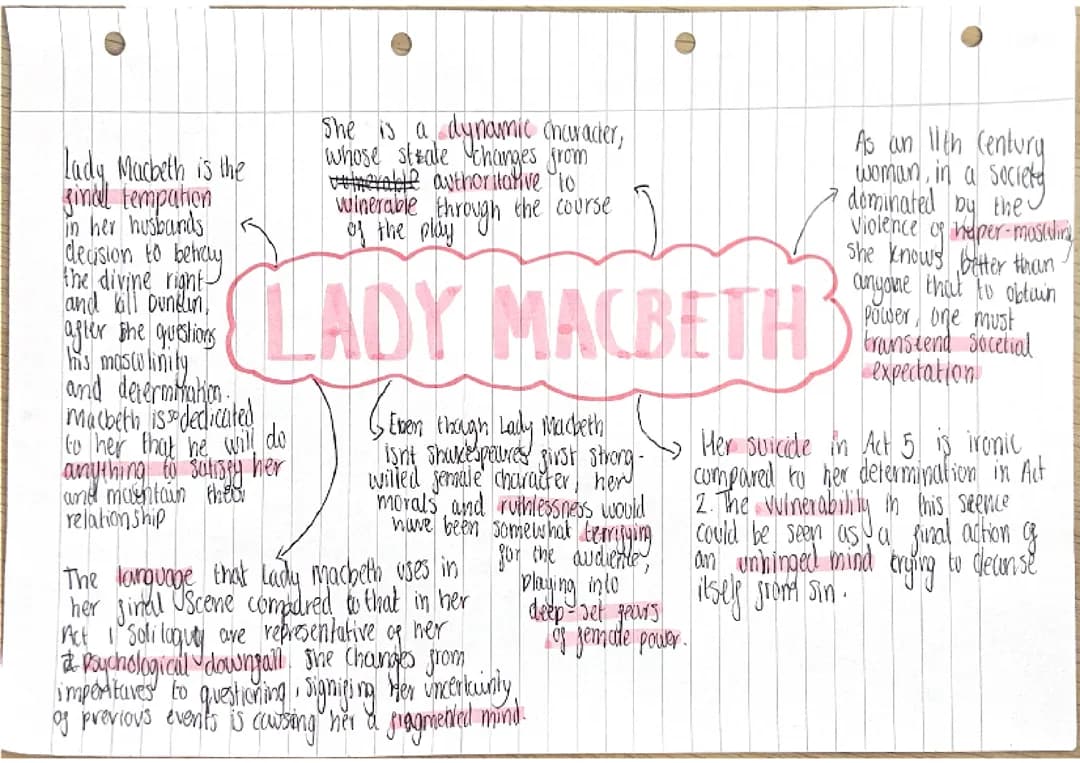 She is a dynamic character,
whose state changes from
vulnerable authoritative to
vulnerable through the course
of the play
Lady Macbeth is the
final tempation
in her husbands
decision to betray
the divine right
and kill Duncan,
after she questions
his masculinity
and determination.
Macbeth is so dedicated
to her that he will do
anything to satisfy her
and maintain their
relationship
As an 11th Century
woman, in a society
dominated by the
violence of hyper-masculinity
she knows better than
anyone that to obtain
power, one must
transcend societial
expectation
LADY MACBETH
Even though Lady Macbeth
isnt Shakespeares first strong-
willed female character, her
morals and ruthlessness would
have been somewhat terrifying
for the audience,
playing into
deep-set fears
of female power.
Her suicide in Act 5 is ironic
compared to her determination in Act
2. The vulnerability in this seence
could be seen as a final action of
an unhinged mind trying to cleanse
itself from sin.
The language that Lady Macbeth uses in
her final scene compared to that in her
Act 1 Soliloquy are representative of her
psychological downfall. She changes from
imperitaves to questioning, signifing her uncertainty
of previous events is causing her a fragmented mind.